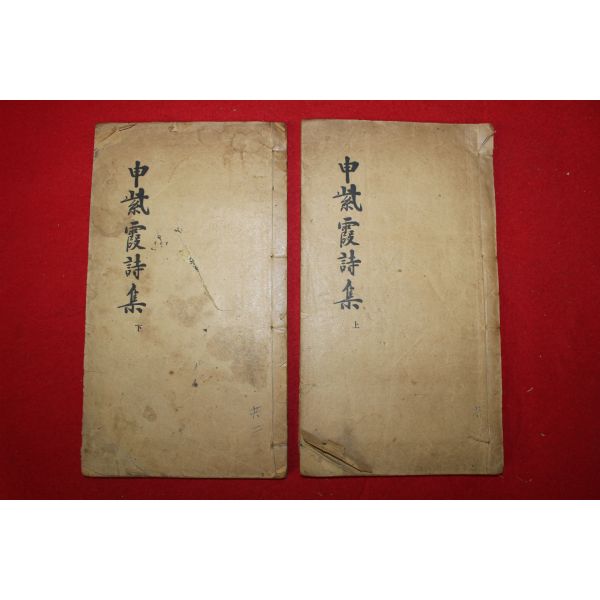 申紫霞詩集
上
申紫霞詩集
下
共二